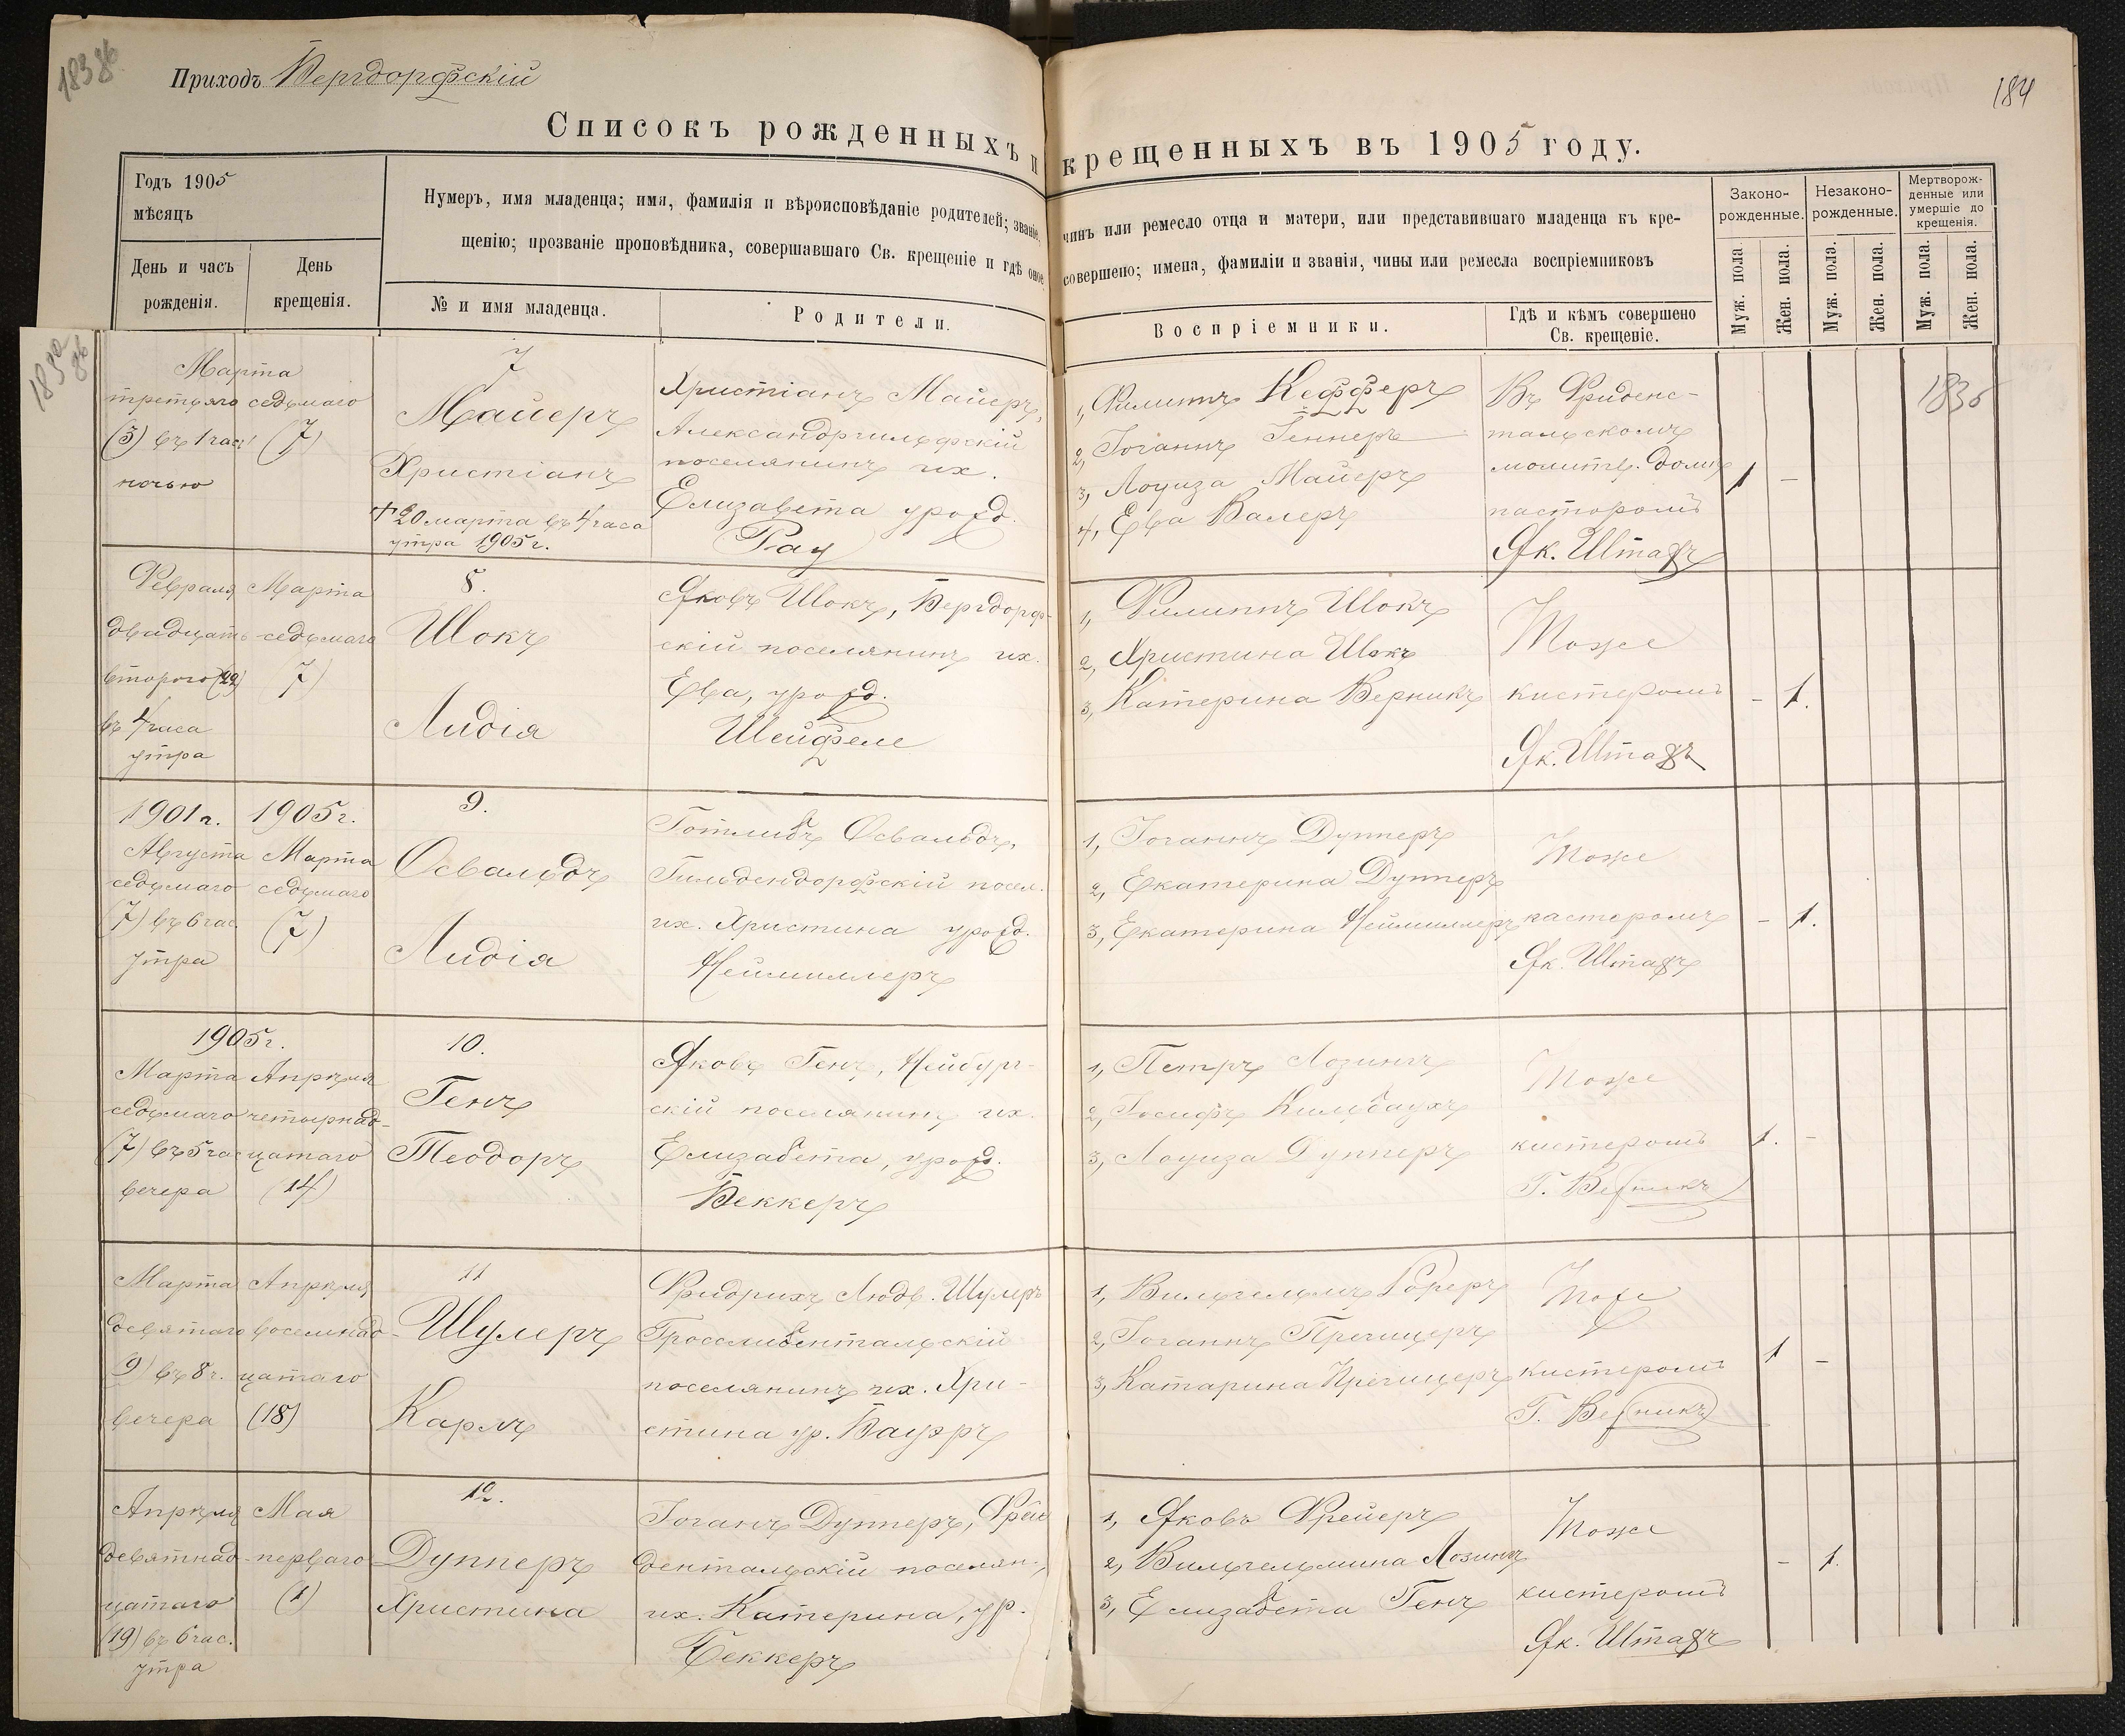 183 об
184
Приходъ Бергдорфскій
Списокъ рожденныхъ и крещенныхъ въ 1905 году.
Годъ 1905
мѣсяцъ
День и часъ
рожденія.
День
крещенія.
Нумеръ, имя младенца; имя, фамилія и вѣроисповѣданіе родителей; званіе,
щенію; прозваніе проповѣдника, совершавшаго Св. крещеніе и гдѣ оное
№ и имя младенца.
Родители.
чинъ или ремесло отца и матери, или представившаго младенца къ кре-
совершено; имена, фамиліи и званія, чины или ремесла воспріемниковъ
Воспріемники.
Гдѣ и кѣмъ совершено
Св. крещеніе.
Законо-
рожденные.
Незаконо-
рожденные.
Мертворож-
денные или
умершіе до
крещенія.
Муж. пола.
Жен. пола.
Муж. пола.
Жен. пола.
Муж. пола.
Жен. пола.
Марта
третьяго
(3) въ 1 час.
ночью
седьмаго
(7)
7
Майеръ
Христіанъ
+ 20 марта въ 4 часа
утра 1905 г.
Христіанъ Майеръ,
Александргильфскій
поселянинъ их.
Елизавета урожд.
Рау
1, Филиппъ Кефферъ
2, Іоганнъ Геннеръ
3, Лоуиза Майеръ
4, Ева Валеръ
Въ Фриденс-
тальскомъ
молитв. домѣ
пасторомъ
Як. Штахъ
1 -
Февраля
двадцать
второго (22)
въ 4 часа
утра
Марта
седьмаго
(7)
8.
Шокъ
Лидія
Яковъ Шокъ, Бергдорф-
скій поселянинъ их.
Ева, урожд.
Шейфеле
1, Филиппъ Шокъ
2, Христина Шокъ
3, Катерина Верникъ
Тоже
кистеромъ
Як. Штахъ
- 1.
1901 г.
Августа
седьмаго
(7) въ 6 час.
утра
1905 г.
Марта
седьмаго
(7)
9.
Освальдъ
Лидія
Готлибъ Освальдъ,
Гильдендорфскій посел.
их. Христина урожд.
Неймиллеръ
1, Іоганнъ Дупперъ
2, Екатерина Дупперъ
3, Екатерина Неймиллеръ
Тоже
пасторомъ
Як. Штахъ
- 1.
1905 г.
Марта
седьмаго
(7) въ 5 час
вечера
Апрѣля
четырнад-
цатаго
(14)
10.
Генъ
Теодоръ
Яковъ Генъ, Нейбург-
скій поселянинъ их.
Елизабета, урожд.
Беккеръ
1, Петръ Лозингъ
2, Іосифъ Кильбаухъ
3, Лоуиза Дупперъ
Тоже
кистеромъ
Г. Верникъ
1. -
Марта
девятаго
9) въ 8 ч.
вечера
Апрѣля
восемнад-
цатаго
(18)
11
Шулеръ
Карлъ
Фридрихъ Людв. Шулеръ
Гросслибентальскій
поселянинъ их. Хри-
стина ур. Бауэръ
1, Вильгельмъ Рореръ
2, Іоганнъ Пречицеръ
3, Катарина Пречицеръ
Тоже
кистеромъ
Г. Верникъ
1 -
Апрѣля
девятнад-
цатаго
(19) въ 6 час.
утра
Мая
перваго
(1)
12.
Дупперъ
Христина
Іоганъ Дупперъ, Фрие
дентальскій поселян.,
их. Катерина, ур.
Беккеръ
1, Яковъ Фрейеръ
2, Вильгельмина Лозингъ
3, Елизабета Генъ
Тоже
кистеромъ
Як. Штахъ
- 1.